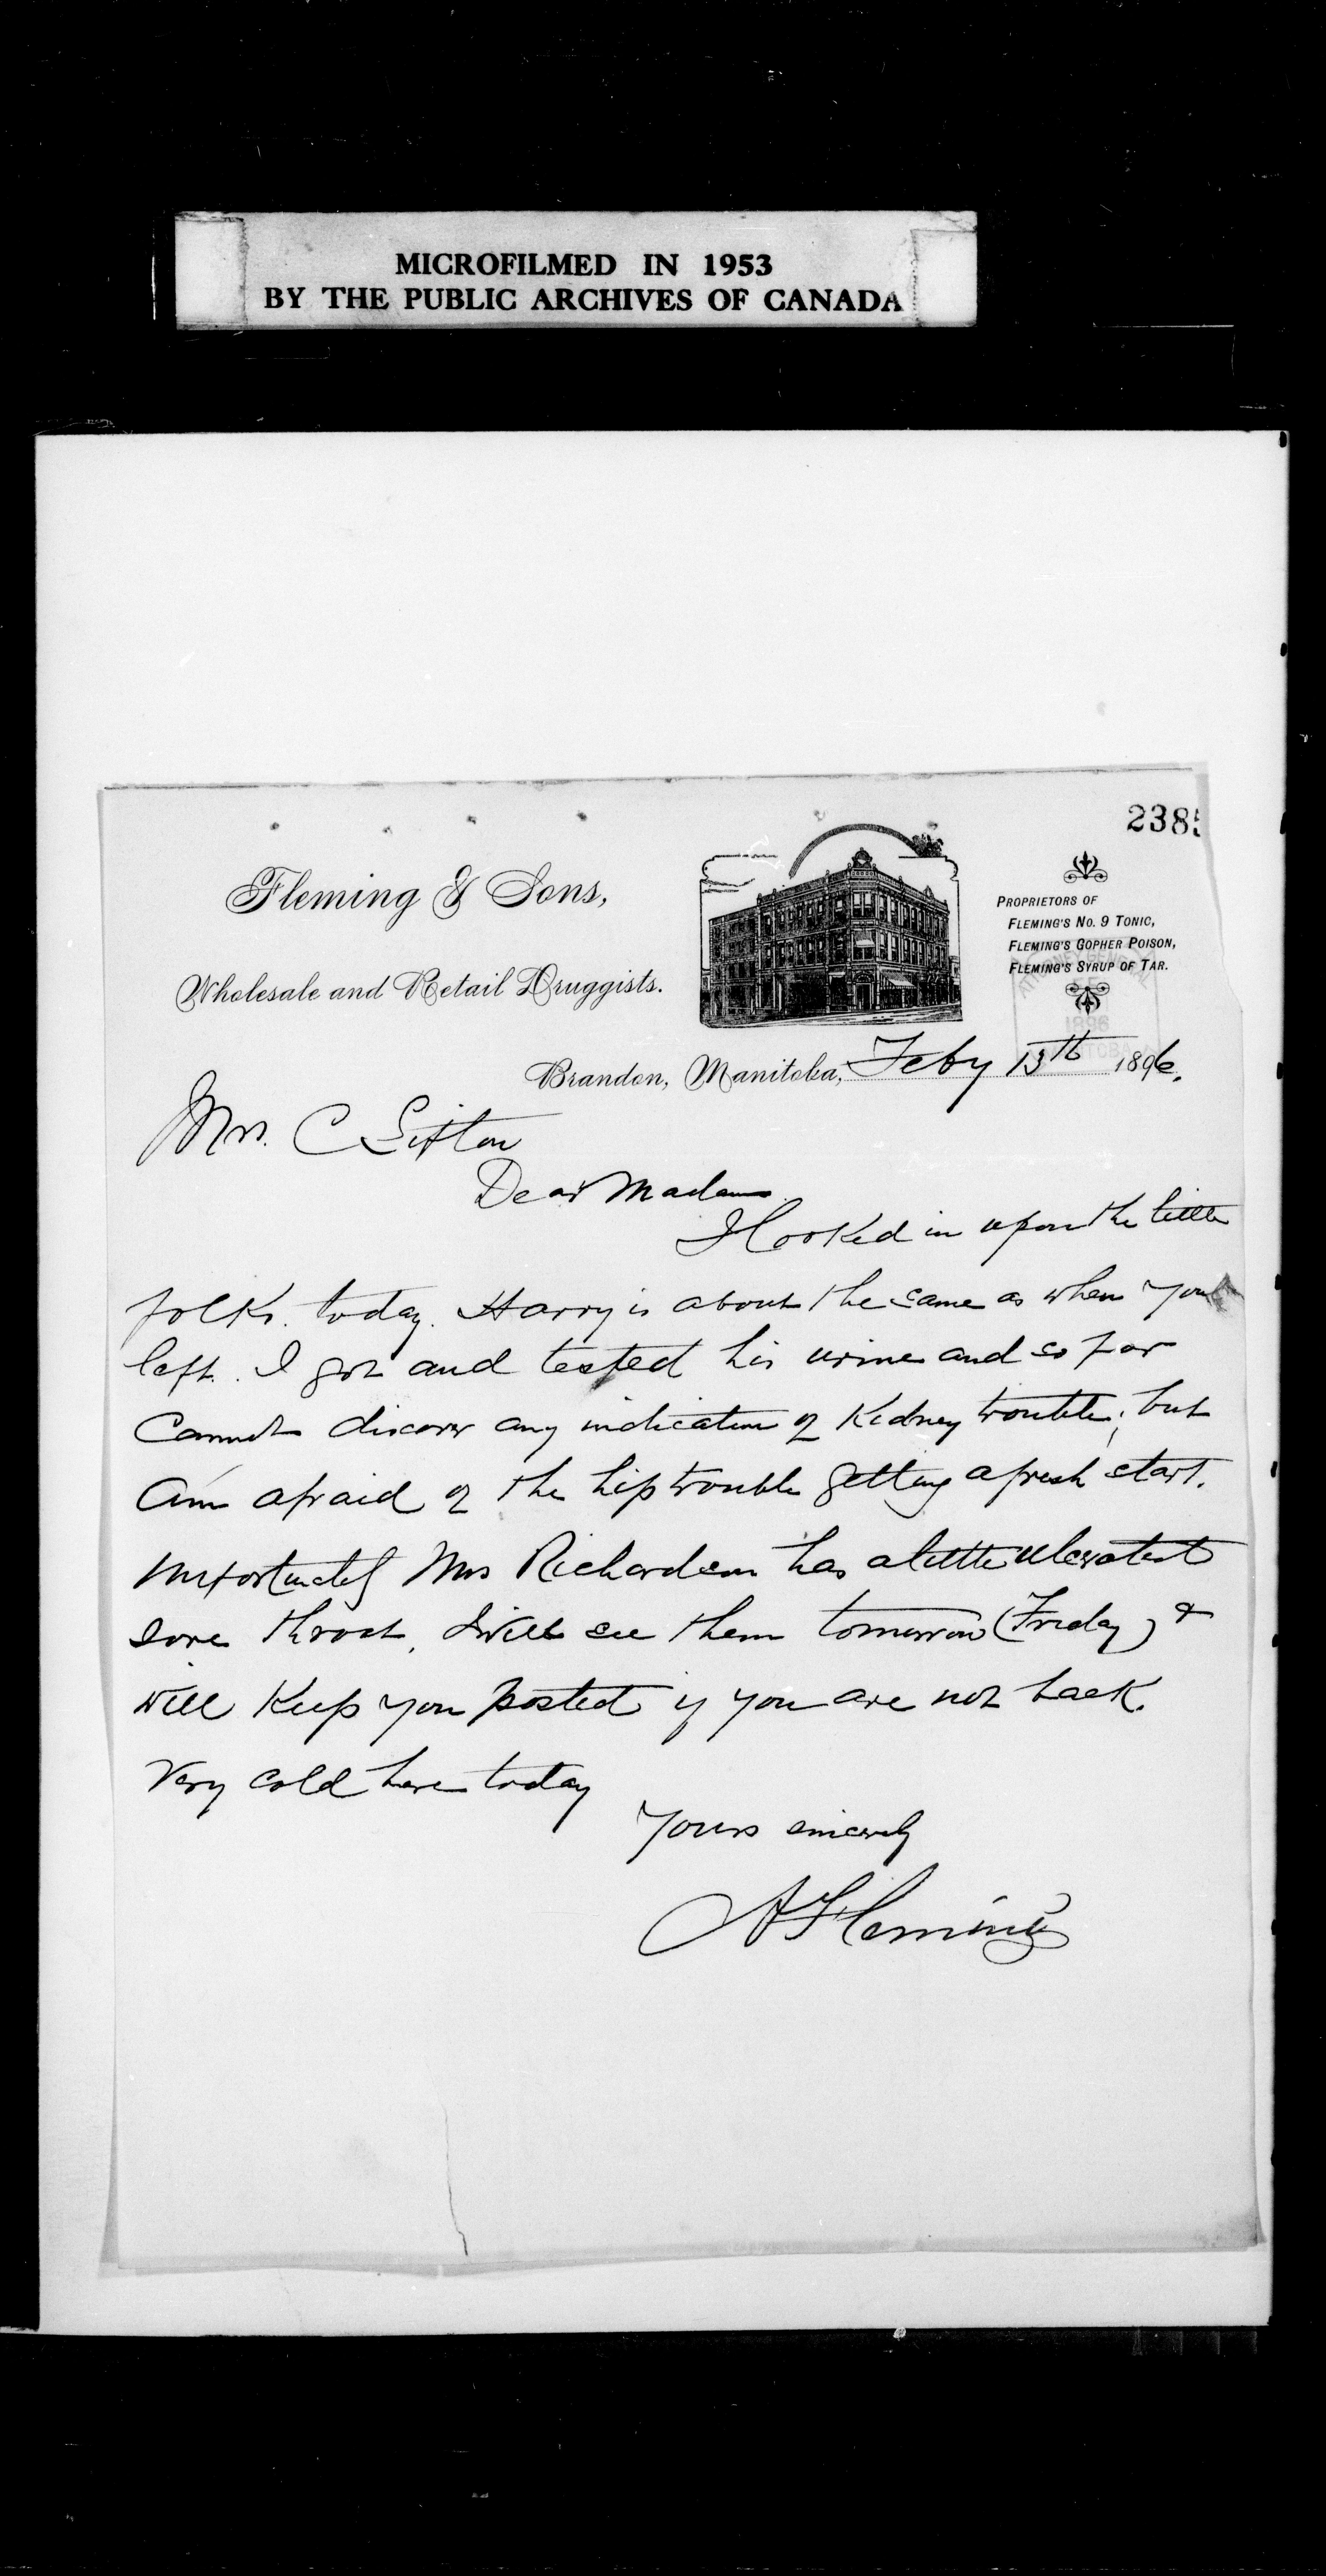 MICROFILMED IN 1953
BY THE PUBLIC ARCHIVES OF CANADA
238
Fleming & Sons,
Wholesale and Retail Druggists.
PROPRIETORS OF
FLEMING'S NO. 9 TONIC,
FLEMING'S GOPHER POISON,
FLEMING'S SYRUP OF TAR.
1896
Brandon, Manitoba, Feby 13th 1896.
Mrs. C Sifton
Dear Madam
I looked in upon the little
folks. today. Harry is about the same as when you
left. I got and tested his urine and so far
cannot discover any indication of Kidney trouble; but
am afraid of the hip trouble getting a fresh start.
Unfortunately Mrs Richardson has a little ulcerated
sore throat. I will see them tomorrow (Friday) &
will Keep you posted if you are not back.
Very cold here today
Yours sincerely
A Fleming